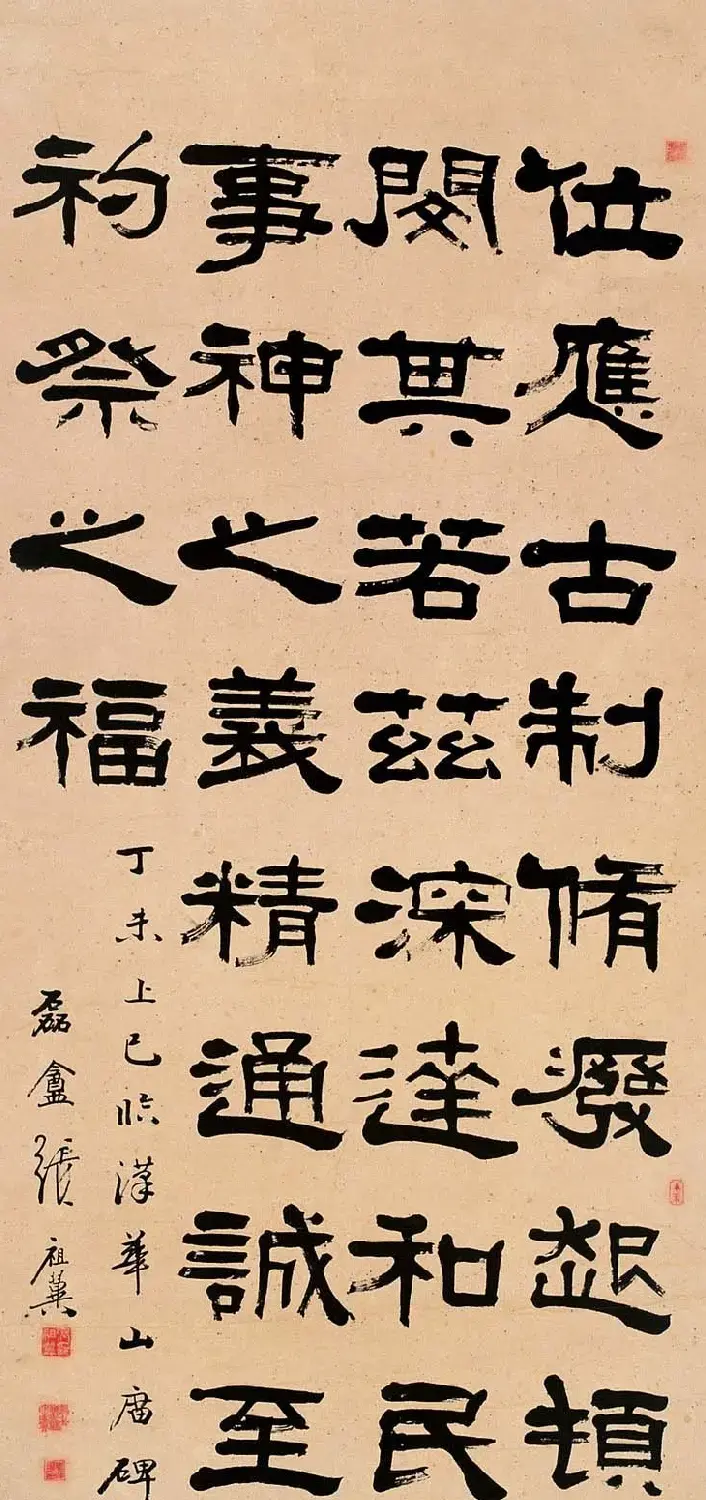 位應古制脩癈起頓
閔其若茲深達和民
事神之義精通誠至
礿祭之福
丁未上巳臨漢華山廟碑
磊盦張祖翼